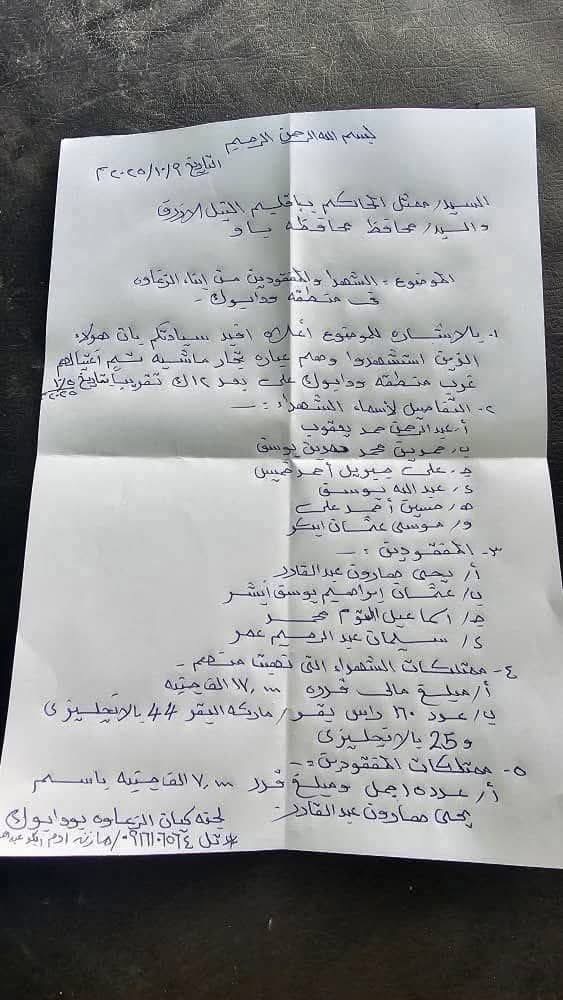 بسم الله الرحمن الرحيم
التاريخ ٢٠٢٥/١٠/٩م
السيد/ ممثل الحاكم باقليم النيل الازرق
والسيد/ محافظ محافظة باو
الموضوع :- الشهدا والمفقودين من ابناء الزغاوه
في منطقه ودابوك -
١- بالاشاره للموضوع أعلاه افيد سيادتكم بان هولاء
الذين استشهدوا وهم عباره تجار ماشيه تم اغتيالهم
غرب منطقه ودابوك على بعد ١٢ ك تقريباً بتاريخ
٢- التفاصيل لأسماء الشهداء :-
أ. عبدالرحمن حمد يعقوب
ب/ محمد يوسف
ج. على جبريل أحمد خميس
د/ عبد الله يوسف
ه/ حسين أحمد على
و/ موسى عثمان ابكر
٣- المفقودين :-
أ/ يحى هارون عبدالقادر
ب/ عثمان إبراهيم يوسف
ج/ اسماعيل التوم محمد
د/ سليمان عبد الرحيم عمر
٤- ممتلكات الشهداء التى نهبت منهم -
أ/ مبلغ مالى قدره الف جنيه
ب/ عدد راس بقر/ ماركه البقر 44 بالانجليزى
و 25 بالانجليزى
٥- ممتلكات المفقودين :-
أ/ عدد جمل ومبلغ قدر الف جنيه باسم
يحى هارون عبدالقادر
لجنه كيان الزغاوه بودابوك
ادم